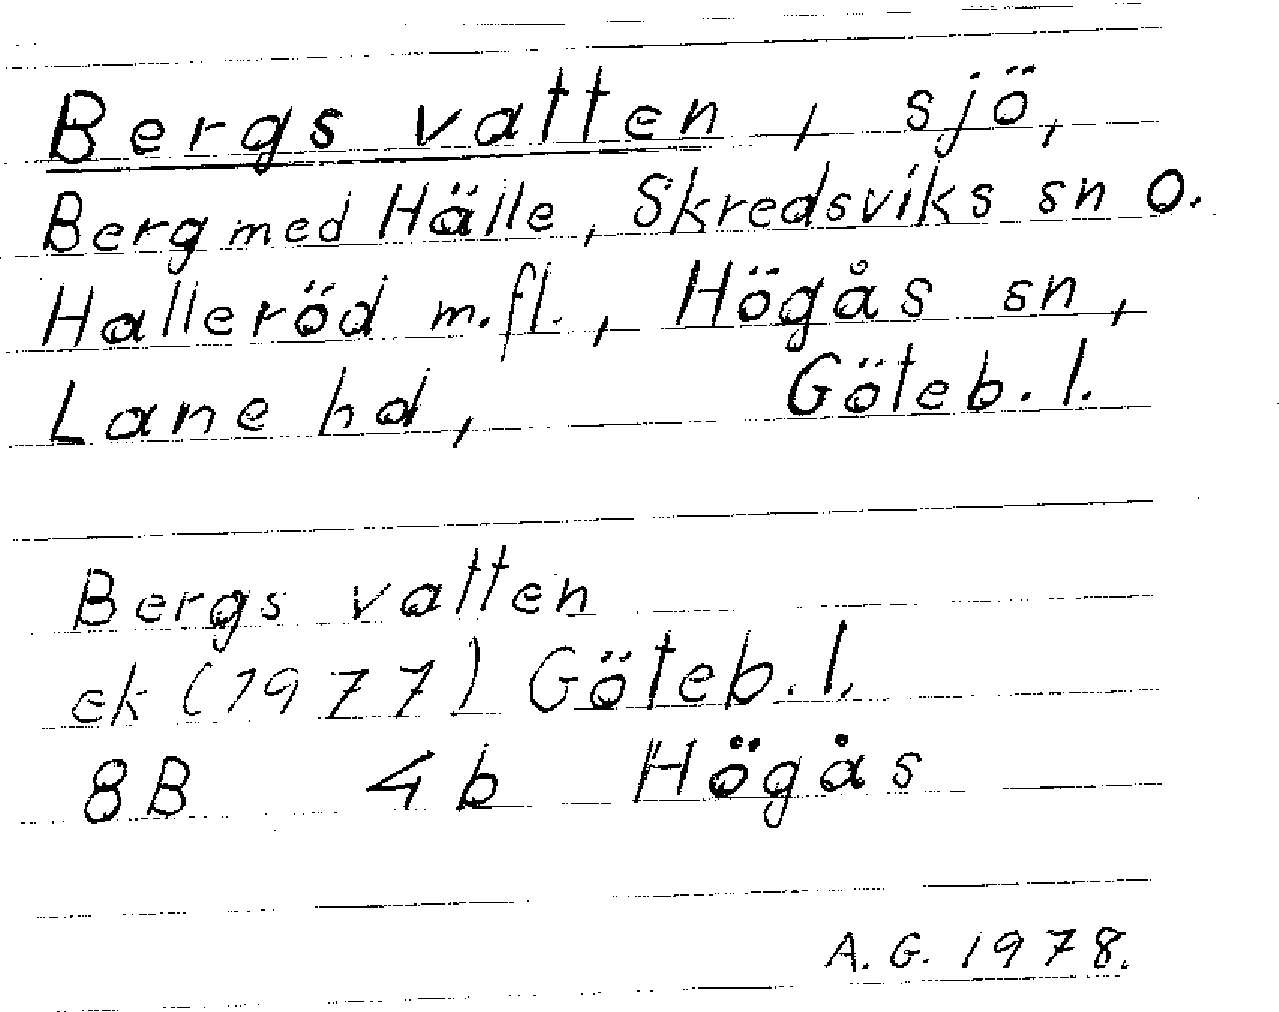 Bergs vatten, sjö,
Berg med Hälle, Skredsviks sn o.
Halleröd m.fl., Högås sn,
Lane hd, Göteb. l.
Bergs vatten
ek (1977) Göteb. l.
8B 4b Högås
A. G. 1978.